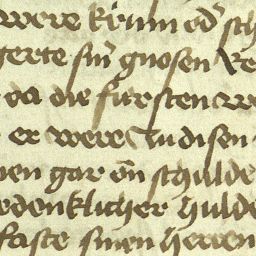 were krum od' sch
gerte sin' gnosen
da die fursten
er were Zu disen
en gar on schulde
edenklicher hulde
faste sinen herren